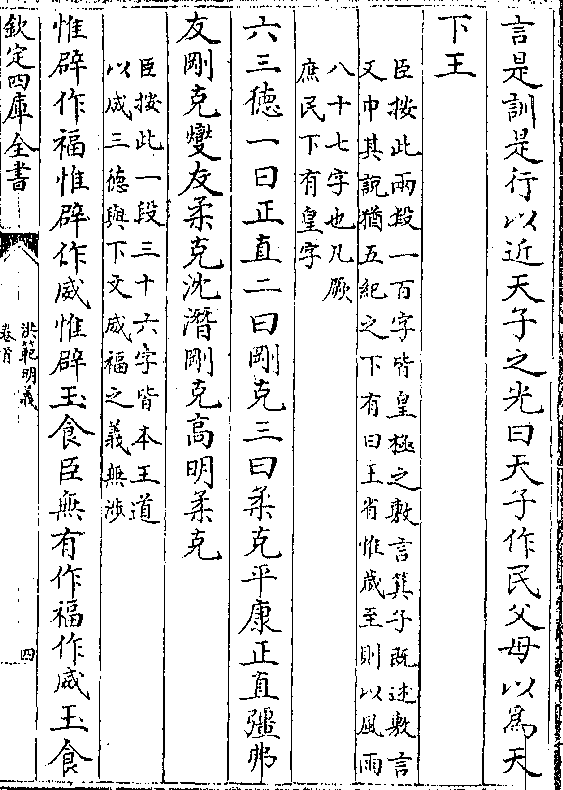 言是訓是行以近天子之光曰天子作民父母以為天
下王
臣按此兩段一百字皆皇極之敷言箕子既述敷言
又申其說猶五紀之下有曰王省惟歲至則以風雨
八十七字也凡厥
庶民下有皇字
六三德一曰正直二曰剛克三曰柔克平康正直彊弗
友剛克燮友柔克沈潛剛克高明柔克
臣按此一段三十六字皆本王道
以咸三德與下文威福之義無涉
惟辟作福惟辟作威惟辟玉食臣無有作福作威玉食
欽定四庫全書
洪範明義
卷首
四